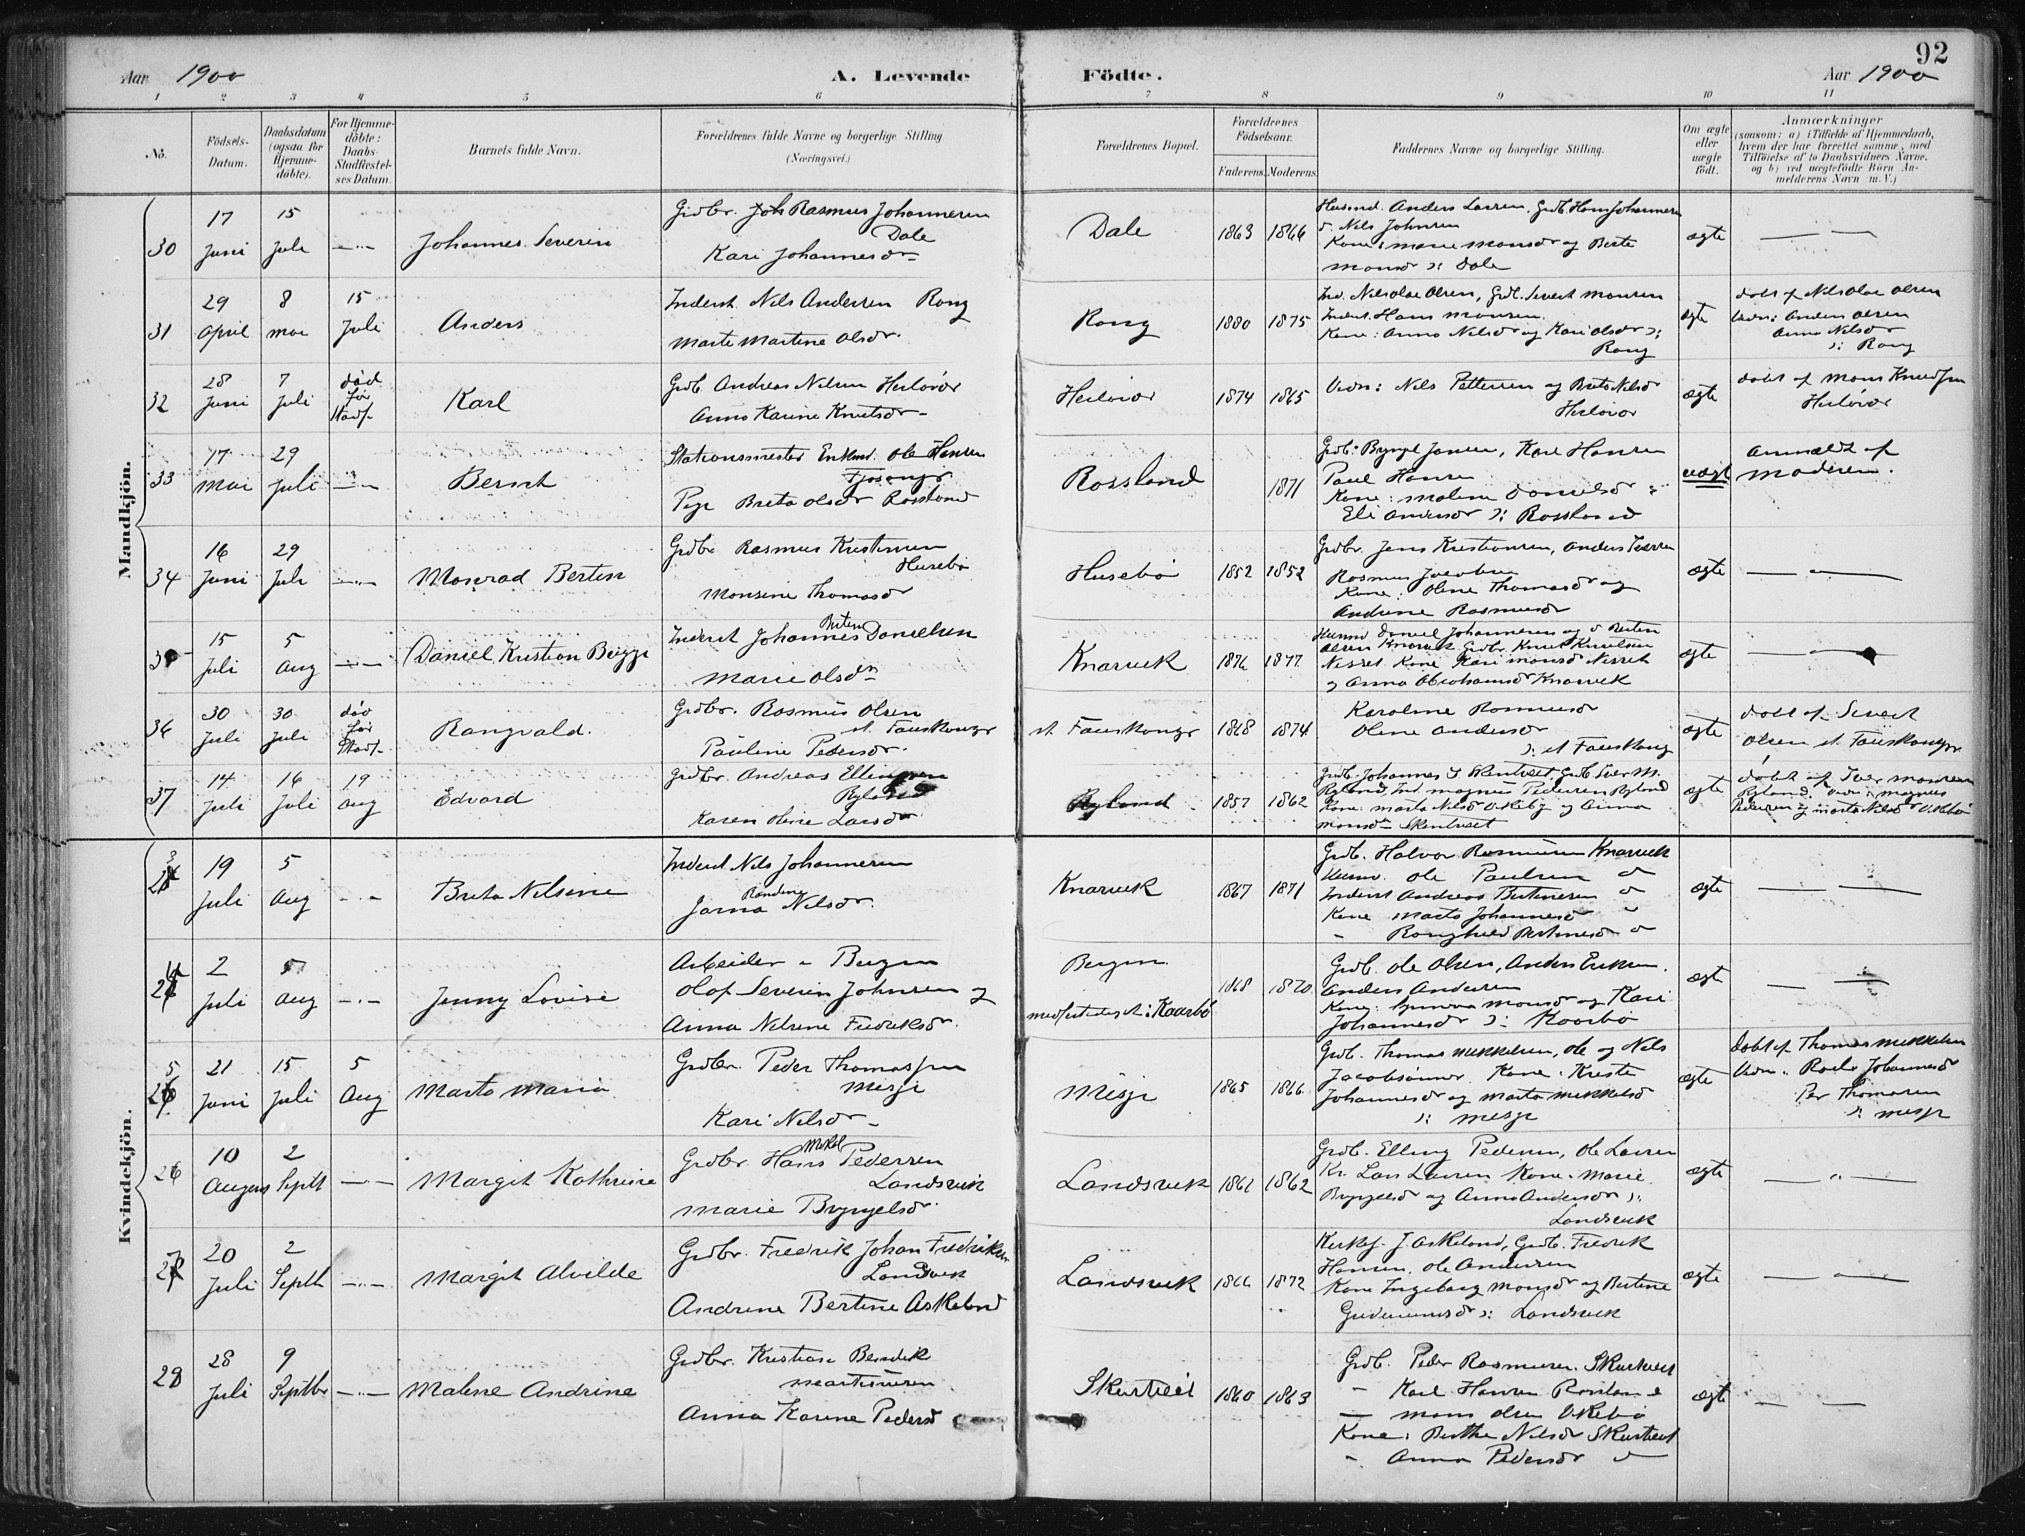 92
Aar 1900
A. Levende
Födte.
Aar 1900
1 2 3 4 5 6 7 8 9 10 11
No.
Födsels-
Datum.
Daabsdatum
(ogsaa for
Hjemme-
döbte).
For Hjemme-
döbte:
Daabs-
Stadfæstel-
ses Datum.
Barnets fulde Navn.
Forældrenes fulde Navne og borgerlige Stilling
(Næringsvei.)
Forældrenes Bopæl.
Forældrenes
Födselsaar.
Faderens. Moderens.
Faddernes Navne og borgerlige Stilling.
Om ægte
eller
uægte
födt.
Anmærkninger
(saasom: a) i Tilfælde af Hjemmedaab,
hvem der har forrettet samme, med
Tilföielse af to Daabsvidners Navne,
og b) ved uægtefödte Börn An-
melderens Navn m. V.)
Mandkjön.
30
17
Juni
15
Juli
Johannes Severin
Grdbr. Rasmus Johannesen
Dale
Kari Johannesdr
Dale
1863 1866
Husmd. Anders Larsen, Grdb. Hans Johannesen
Nils Johnsen
Kone: Marie Monsdr og Berte
Monsdr : Dale
ægte
31
29
April
8
Mai
15
Juli
Anders
Inderst. Nils Andersen Rong
Marte Martine Olsdr.
Rong
1880 1875
Ind. Nils Olai Olsen, Grdb. Severt Monsen
Inderst. Hans Monsen.
Kone: Anna Nilsdr og Kari Olsdr :
Rong
ægte
Döbt af Nils Olai Olsen
Vidn: Anders Olsen
Anna Nilsdr
: Rong
32
28
Juni
7
Juli
död
för
Stadf.
Karl
Grdb. Andreas Nilsen Herlöver
Anna Karine Knutsdr
Herlöver
1874 1865
Vidn: Nils Pettersen og Brita Nilsdr
Herlöver
ægte
Döbt af Mons Knudsen
Herlöver
33
17
Mai
29
Juli
Bernt
Stationsmester Enkmd. Ole Hansen
Fjosanger
Pige Brita Olsdr Rossland
Rossland
1871
Grdb: Brynjel Jansen, Karl Hansen
Paul Hansen
Kone: Malene Danielsdr
Eli Andersdr : Rossland
uægt
Anmeldt af
Moderen.
34
16
Juni
29
Juli
Monrad Bertin
Grdbr Rasmus Kristensen
Husebö
Monsine Thomasdr
Husebö
1852 1852
Grdbr. Jens Kristiansen, Anders Iversen
Rasmus Jacobsen
Kone: Oline Thomasdr og
Andrine Rasmusdr
ægte
35
15
Juli
5
Aug
Daniel Kristian Brigge
Inderst Johannes Danielsen
Marie Olsdr
Knarvik
1876 1877
Husmd Daniel Johannesen og
Olsen Knarvik, Grdbr Knut Knutsen
Kone Kari Monsdr
og Anna Abrahamsdr Knarvik
ægte
36
30
Juli
30
Juli
död
för
Stadf.
Rangvald.
Grdbr. Rasmus Olsen
st. Fauskanger
Pauline Pedersdr.
st. Fauskanger
1868 1874
Karoline Rasmusdr
Oline Andersdr
: st. Fauskang
ægte
Döbt af Severt
Olsen st. Fauskanger
37
14
Juli
16
Juli
19
Aug
Edvard
Grdbr. Andreas Ellingsen
Ryland
Karen Oline Larsdr
Ryland
1857 1862
Grdb. Johannes Skurtveit, Grdb. Iver M.
Ryland, Ind. Magnus Pedersen Ryland
Kone: Marta Nilsdr Vikebö og Anna
Monsdr Skurtveit
ægte
Döbt af Iver Monsen
Ryland. Vidn: Magnus
Pedersen og Marta Nilsdr Vikebö
Kvindekjön.
19
Juli
5
Aug
Brita Nilsine
Inderst Nils Johannesen
Nilsdr.
Knarvik
1867 1871
Grdb. Halvor Rasmussen Knarvik
Husmd. Ole Paulsen
Inderst Andreas Bertinesen
Kone Marta Johannesdr
Ranghild Bertinesdr
ægte
2
Juli
5
Aug
Jenny Lovise
Arbeider i Bergen
Olaf Severin Johnsen og
Anna Nilsine Fredriksdr.
Bergen
Kaarbö
1868 1870
Grdb. Ole Olsen, Anders Eriksen.
Anders Andersen
Kone: Monsdr og Kari
Johannesdr : Kaarbö
ægt
21
Juni
15
Juli
5
Aug
Marta Maria
Grdbr. Peder Thomassen
Misje
Kari Nilsdr
Misje
1865 1866
Grdb. Thomas Mikkelsen, Ole og Nils
Jacobsönner. Kone: Kristi
Johannesdr og Marta Mikkelsd
: Misje
ægte
Döbt af Thomas Mikkelsen
Vidn: Johannesdr
Per Thomasen
: Misje
26
10
August
2
Septb
Margit Kathrine
Mikal
Grdbr. Hans Pedersen
Landsvik
Marie Brynjelsdr.
Landsvik
1861 1862
Grdb. Elling Pedersen, Ole Larsen
Lars Larsen Kone: Marie
Brynjelsdr og Anna Andersdr :
Landsvik
ægte
27
20
Juli
2
Septb
Margit Alvilde
Grdbr. Fredrik Johan Fredriksen
Landsvik
Andrine Bertine Askeland
Landsvik
1866 1872
Kirkesj. J. Askeland, Grdb. Fredrik
Hansen, Ole Andersen
Kone Ingeborg Monsdr og Bertine
Gudmundsdr : Landsvik
ægte
28
28
Juli
9
Septbr
Malene Andrine
Grdbr. Kristian Bendik
Martinusen
Anna Karine Pedersd
Skurtveit
1860 1863
Grdb. Peder Rasmussen Skurtveit
Karl Hansen Rossland
Mons Olsen Vikebö
Kone: Berthe Nilsdr Skurtveit
Anna Pedersdr
ægte